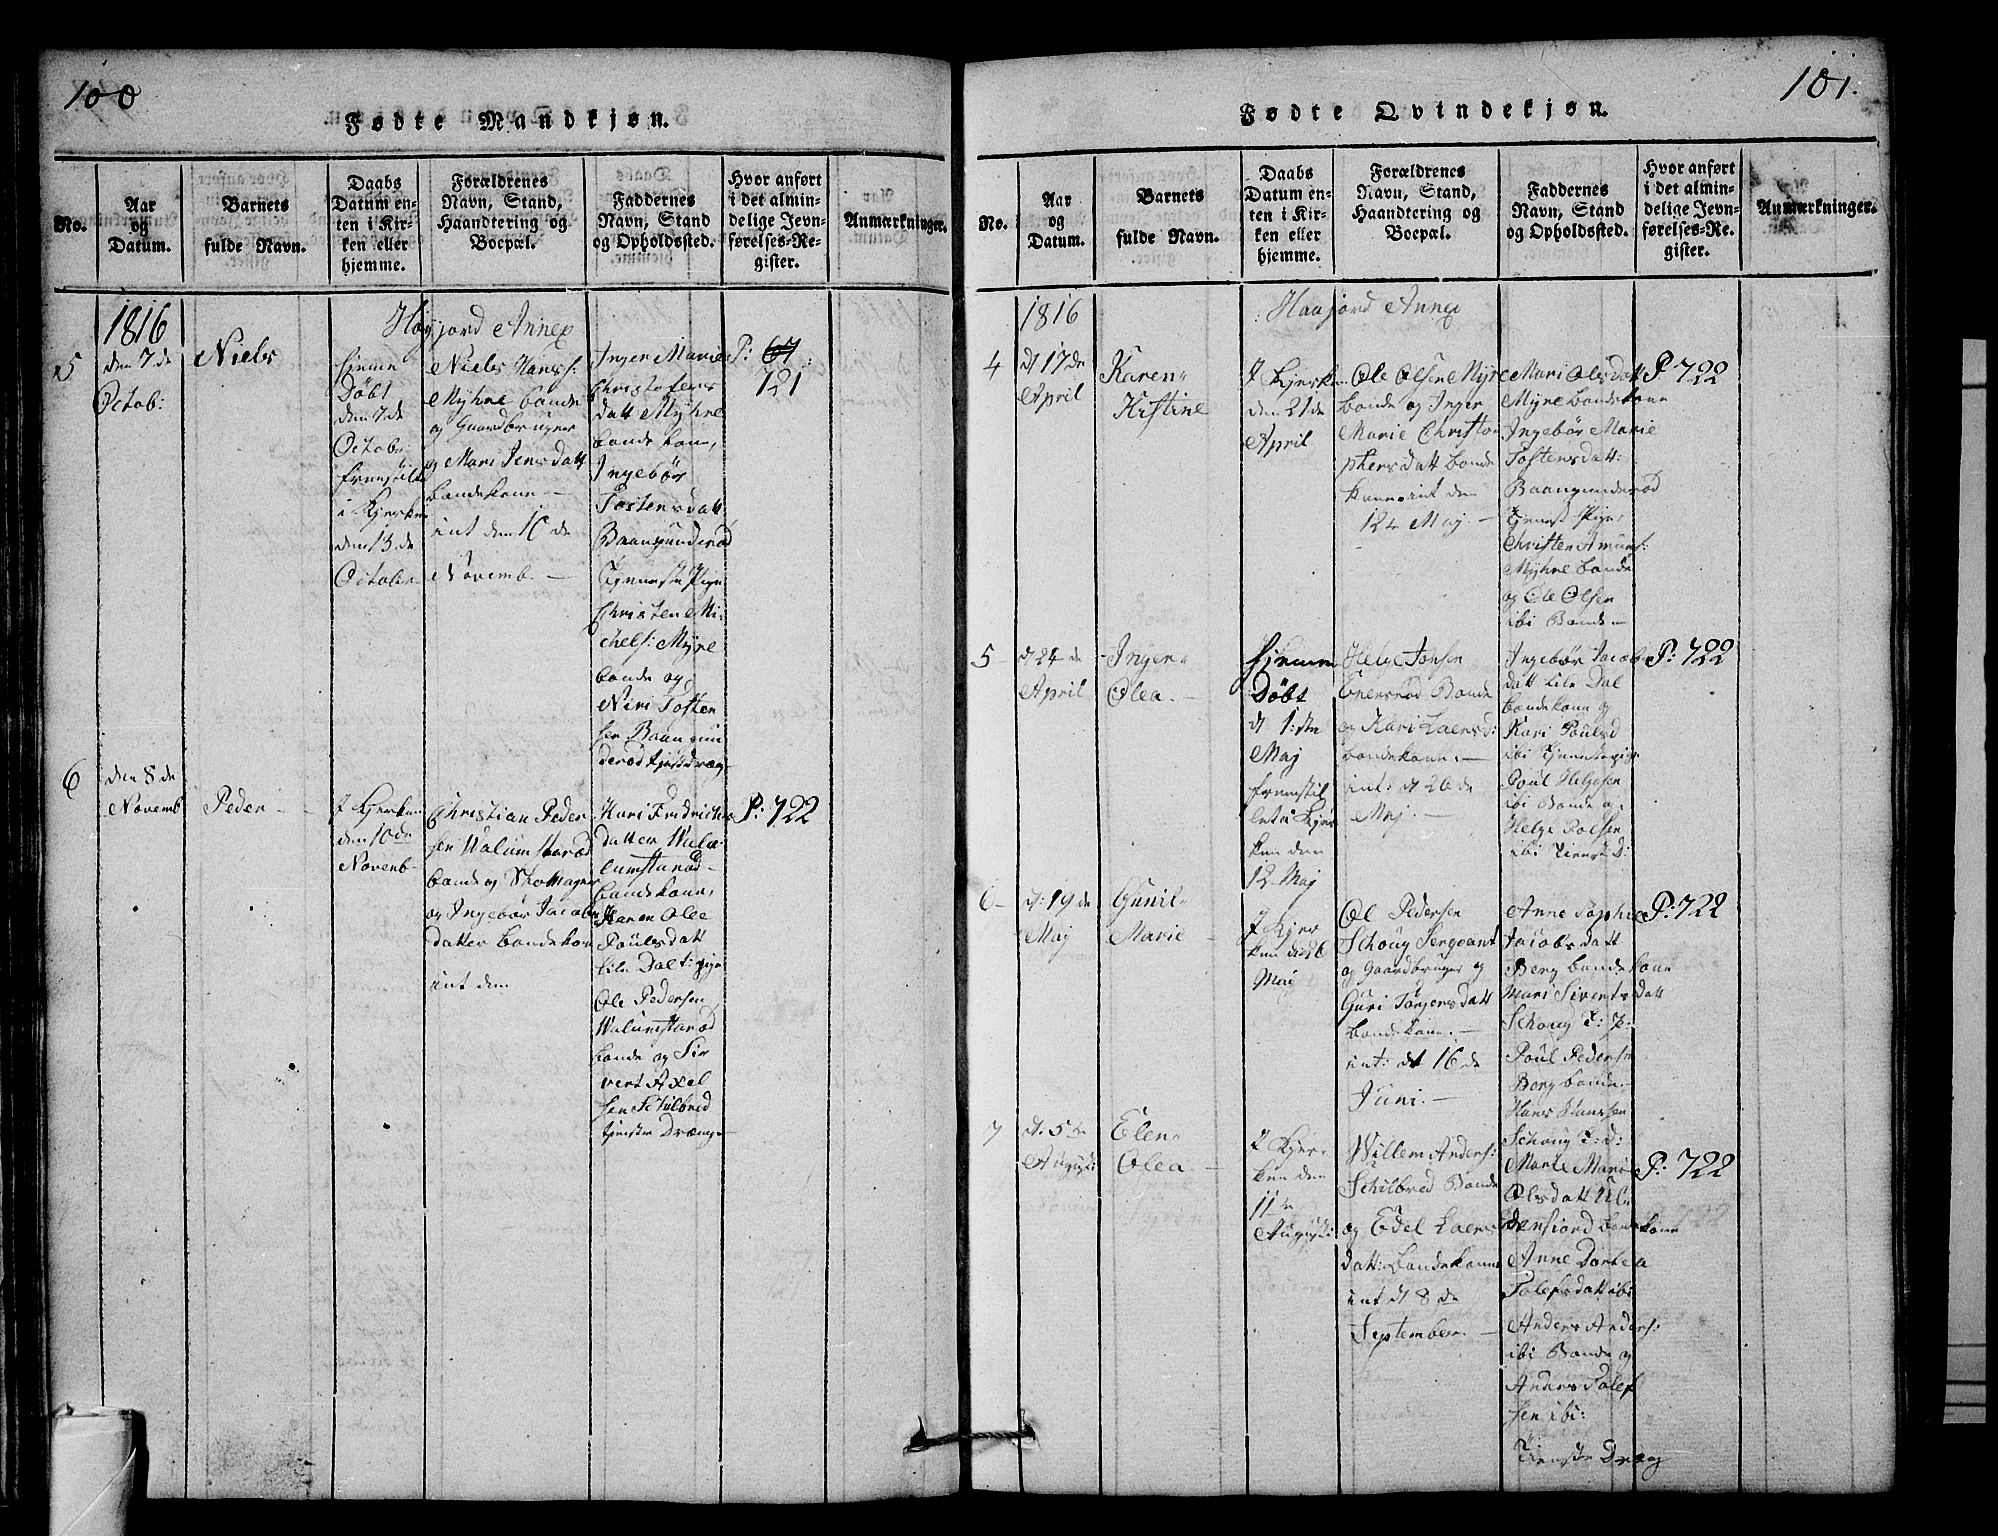 100
Fødte Mandkjøn.
No.
Aar
og
Datum.
Barnets
fulde Navn.
Daabs
Datum en-
ten i Kir-
ken eller
hjemme.
Forældrenes
Navn, Stand,
Haandtering og
Boepæl.
Faddernes
Navn, Stand
og Opholdssted.
Hvor anført
i det almin-
delige Jevn-
førelses-Re-
gister.
Anmærkninger.
1816
Høyjord Annex
5
den 7de
Octob:
Niels
hjem
Döbt
den 7de
Octob:
fremstilt
i Kjerken
den 13de
October
Niels Hans:
Myhre bonde
og Gaardbruger
og Mari Jensdatt
bondekone —
int den 10de
Novemb. —
Inger Marie
Christofers
datt Myhre
bonde kone,
Ingebör
Tostensdatt
Baangunderöd
Tjeneste Pige
Christen Mi
chels: Myre
bonde og
Niri Tosten
sen Baangun
deröd tjenstdræng
P: 67
121
6
den 8de
Novemb
Peder —
I Kjerken
den 10de
Novemb
Christian Peder
sen Walumstaröd
bonde og Skomager
og Ingebör Jacobs
datter bondekone
int den
Kari Fridrichs
datter Wal-
lumstaröd
bondekone,
Karen Olea
Poulsdatt
Lile Dal t: pige
Ole Pedersen
Walumstaröd
bonde og Si
vert Axel
sen Schilbred
tjeneste Dræng
P: 722
101.
Fødte Qvindekjøn.
No.
Aar
og
Datum.
Barnets
fulde Navn.
Daabs
Datum en-
ten i Kir-
ken eller
hjemme.
Forældrenes
Navn, Stand,
Haandtering og
Boepæl.
Faddernes
Navn, Stand
og Opholdssted.
Hvor anført
i det almin-
delige Jevn-
førelses-Re-
gister.
Anmærkninger.
1816
Haajord Annex
4
d 17de
April
Karen
Kistine
I Kjerken
den 21de
April
Ole Olsen Myre
bonde og Inger
Marie Christo
phersdatt bonde
kone. int den
12te Maj. —
Mari Olsdatt
Myre bondekone
Ingebör Marie
Tostensdatt:
Baangunderöd
Tjenest Pige,
Christen Amuns:
Myhre bonde
og Ole Olsen
ibi Bonde —
P 722
5
d 24de
April
Inger
Olea. —
hjemme
Döbt
d 1:ste
Maj
fremstil
let i Kjer
ken den
12 Maj
Helge Jonsen
Enersröd Bonde
og Kari Laersd:
bondekone. —
int: d 26de
Maj. —
Ingebör Jacobs
datt Lile Dal
bondekone og
Kari Poulsd
ibi Tjenestepige
Poul Helgesen
ibi Bonde og
Helge Poelsen
ibi Tienst D:
P: 722
6
d: 19de
Maj
Gunil
Marie —
I Kjer
ken d: 26
Maj
Ol Pedersen
Schoug Sergeant
og Gaardbruger og
Guri Törjersdatt
bondekone. —
int: d 16de
Juni. —
Anne Sophie
Jacobsdatt
Berg bondekone
Mari Sivertsdatt
Schoug T: P:
Poul Pedersen
Berg bonde.
Hans Hanssen
Schoug T: d:
P: 722
7
d: 5te
Augusti
Elen
Olea. —
I Kjer
ken den
11te
Augusti
Willem Anders:
Schilbred Bonde
og Edel Laers
datt: bondekone
int d 8de
September. —
Marte Mari
Olsdatt
bondekone
Anne Dortea
Tolefsdatt ibi
Anders Anders:
ibi Bonde og
Anders Tolef
sen ibi:
Tieneste Dræng
P: 722